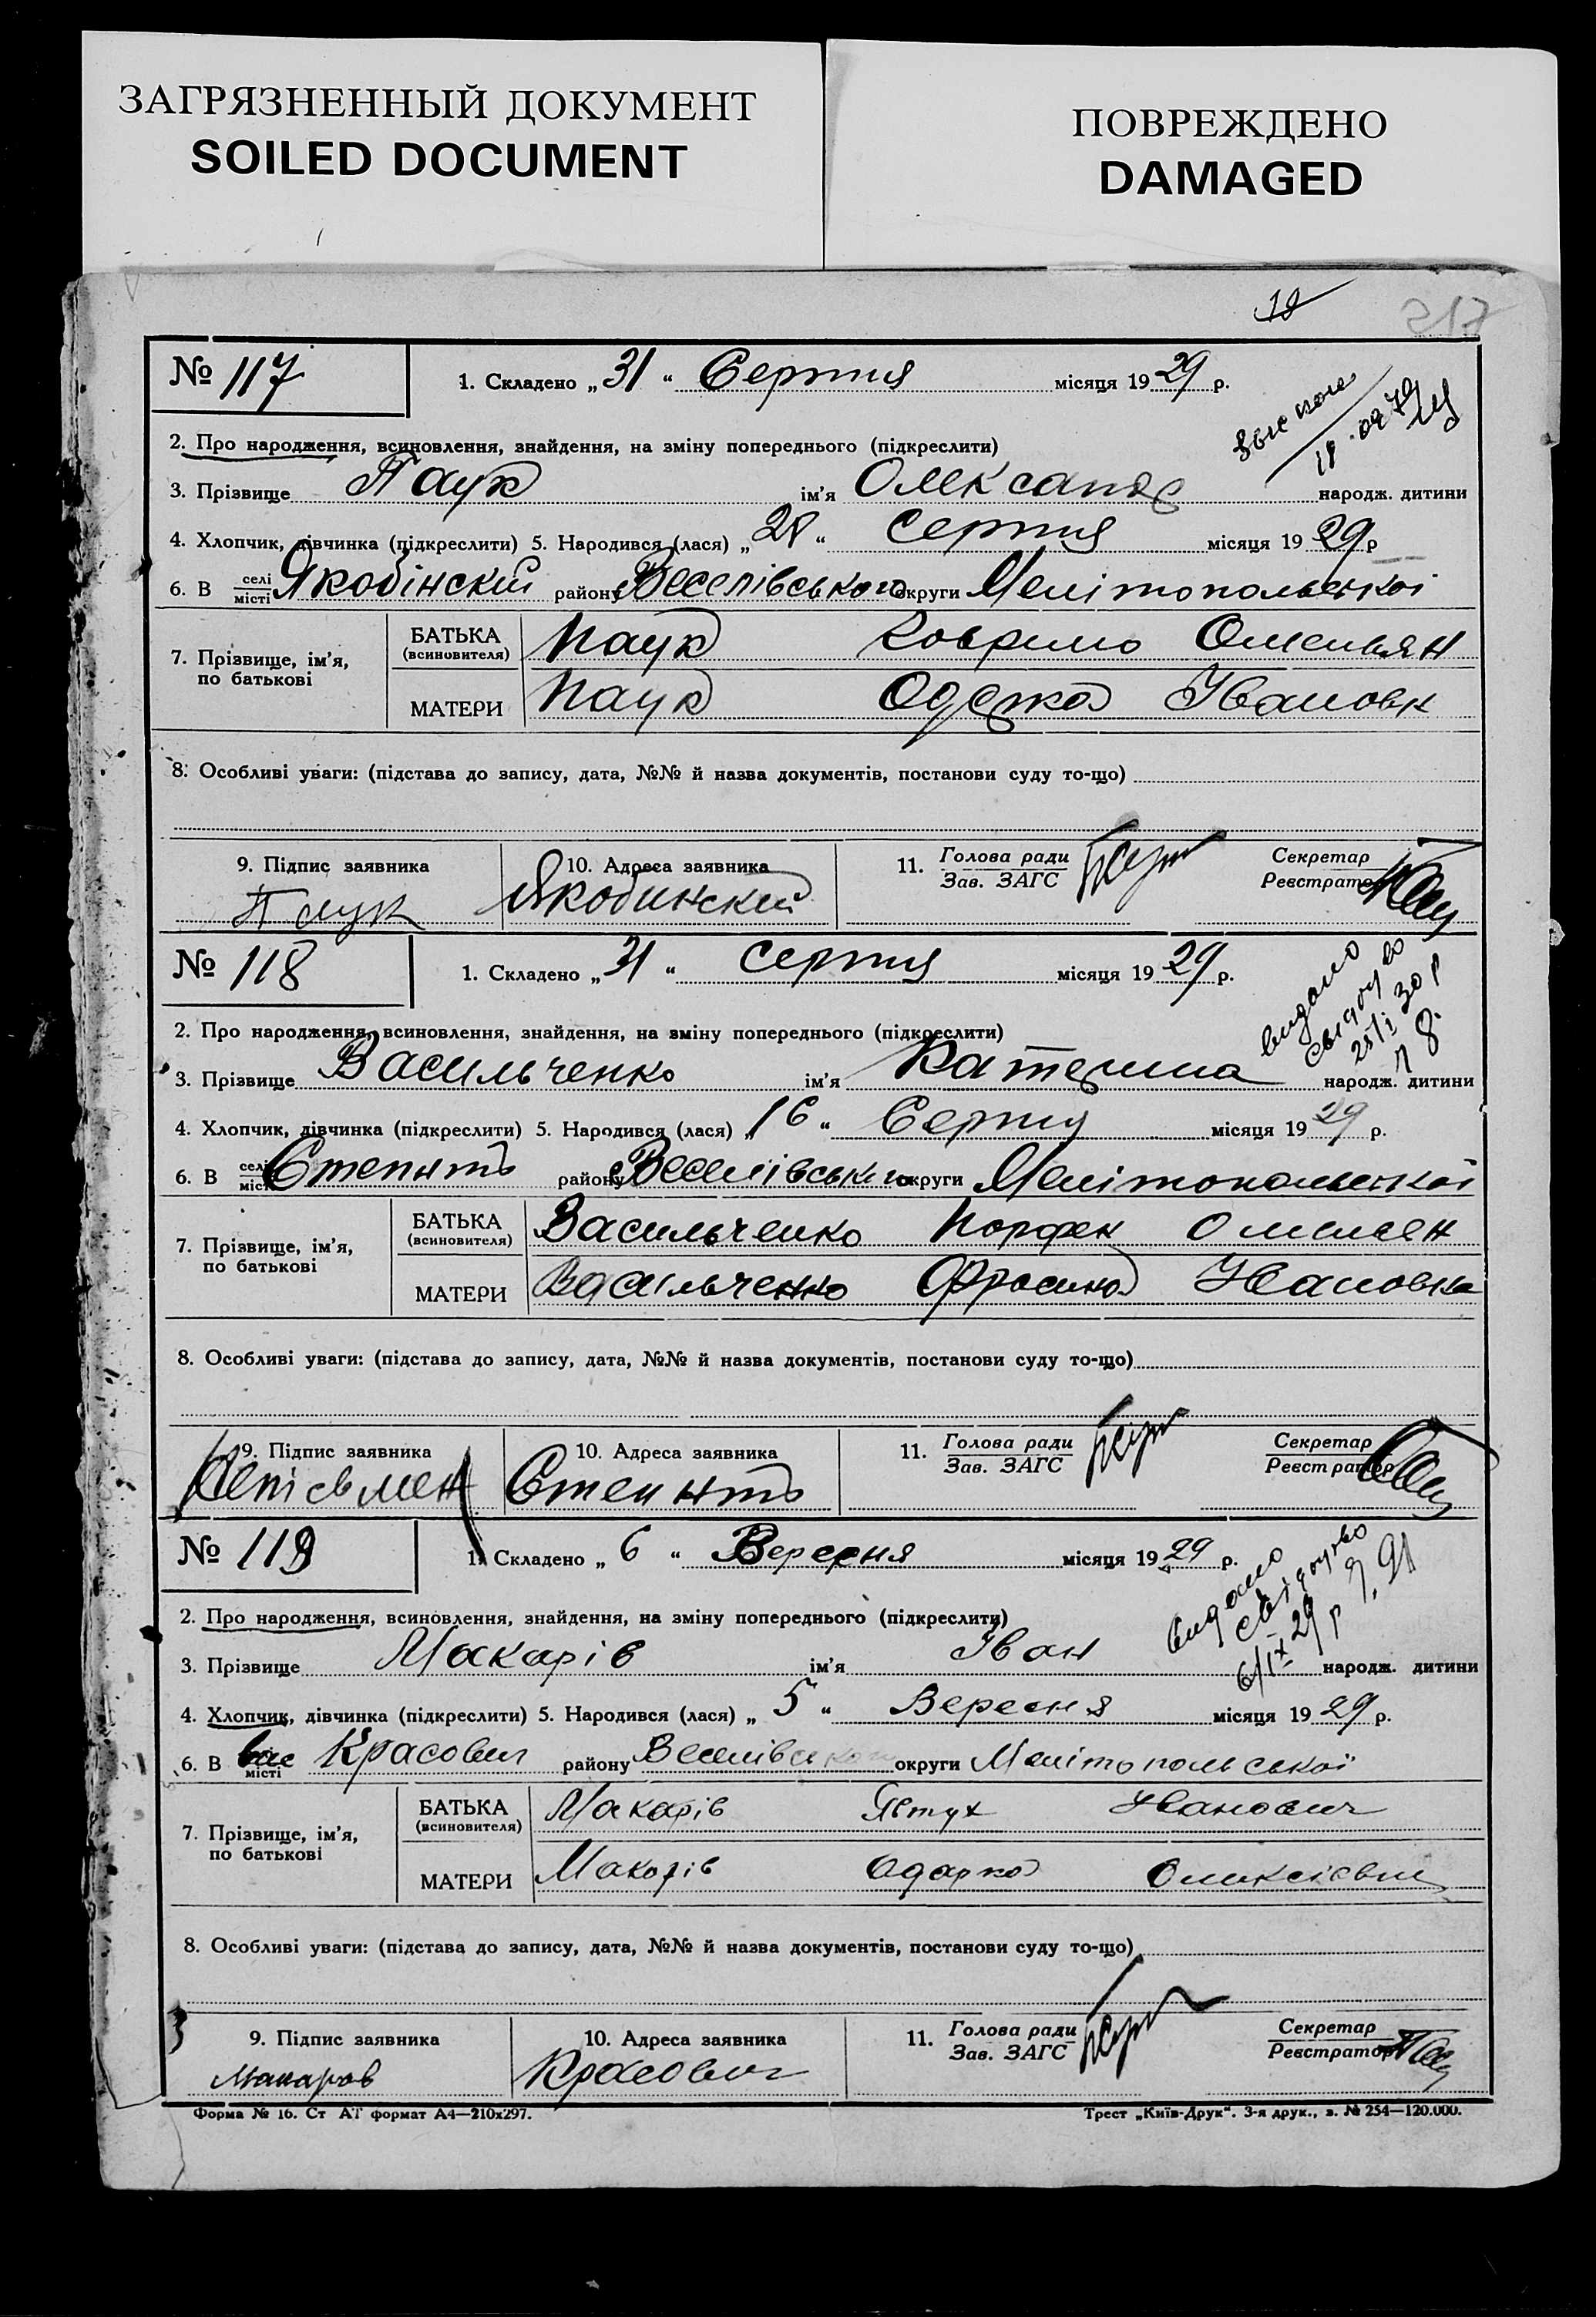 ЗАГРЯЗНЕННЫЙ ДОКУМЕНТ
SOILED DOCUMENT
ПОВРЕЖДЕНО
DAMAGED
18
317
№ 117
1. Складено „ 31 “ Серпня місяця 19 29 р.
2. Про народження, всиновлення, знайдення, на зміну попереднього (підкреслити)
3. Прізвище Паук ім’я Олександр народж. дитини
4. Хлопчик, дівчинка (підкреслити) 5. Народився (лася) „ 28 “ Серпня місяця 19 29 р
6. В селі місті Якобінский району Веселівського округи Мелітопольської
7. Прізвище, ім’я, по батькові
БАТЬКА (всиновителя) Паук Омельян
МАТЕРИ Паук Одарка Івановн
8. Особливі уваги: (підстава до запису, дата, №№ й назва документів, постанови суду то-що)
9. Підпис заявника
10. Адреса заявника
11. Голова ради Зав. ЗАГС
Секретар Реєстратор
Паук Якобинский
№ 118
1. Складено „ 31 “ серпня місяця 19 29 р.
видано
свідоцтво
25/I 30 р
2. Про народження, всиновлення, знайдення, на зміну попереднього (підкреслити)
3. Прізвище Васильченко ім’я Катерина народж. дитини
4. Хлопчик, дівчинка (підкреслити) 5. Народився (лася) „ 16 “ Серпня місяця 19 29 р.
6. В селі місті району Веселівського округи Мелітопольської
7. Прізвище, ім’я, по батькові
БАТЬКА (всиновителя) Васильченко Порфен Омельян
МАТЕРИ Васильченко Фросина Івановна
8. Особливі уваги: (підстава до запису, дата, №№ й назва документів, постанови суду то-що)
9. Підпис заявника
10. Адреса заявника
11. Голова ради Зав. ЗАГС
Секретар Реєстратор
№ 119
1. Складено „ 6 “ Вересня місяця 19 29 р.
видано
свідоцтво
6/IX 29 р
2. Про народження, всиновлення, знайдення, на зміну попереднього (підкреслити)
3. Прізвище Макарів ім’я Іван народж. дитини
4. Хлопчик, дівчинка (підкреслити) 5. Народився (лася) „ 5 “ Вересня місяця 19 29 р.
6. В місті району Веселівського округи Мелітопольської
7. Прізвище, ім’я, по батькові
БАТЬКА (всиновителя) Макарів Явтух Іванович
МАТЕРИ Макарів Одарка Олексієвна
8. Особливі уваги: (підстава до запису, дата, №№ й назва документів, постанови суду то-що)
9. Підпис заявника
10. Адреса заявника
11. Голова ради Зав. ЗАГС
Секретар Реєстратор
Макаров
Форма № 16. Ст АТ формат А4—210x297.
Трест „Київ-Друк“. 3-я друк., з. № 254—120.000.